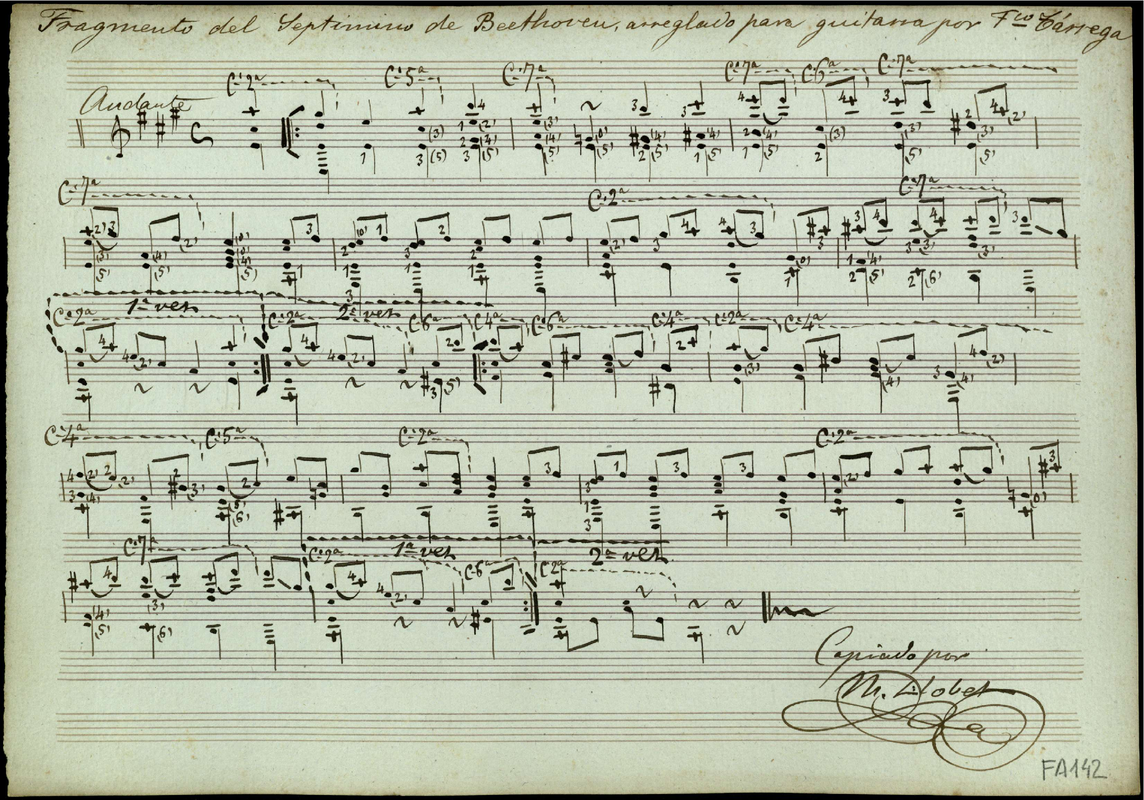 Fragmento del Septimino de Beethoven, arreglado para guitarra por F.co Tárrega
C. 2ª C. 5ª C. 7ª C. 7ª C. 6ª C. 7ª
Andante
C. 7ª C. 2ª C. 7ª
1ª vez 2ª vez
C. 2ª C. 2ª C. 6ª C. 4ª C. 6ª C. 4ª C. 2ª C. 4ª
C. 4ª C. 5ª C. 2ª C. 2ª
C. 7ª 1ª vez 2ª vez
C. 2ª C. 6ª C. 2ª
Copiado por
M. Llobet
FA142